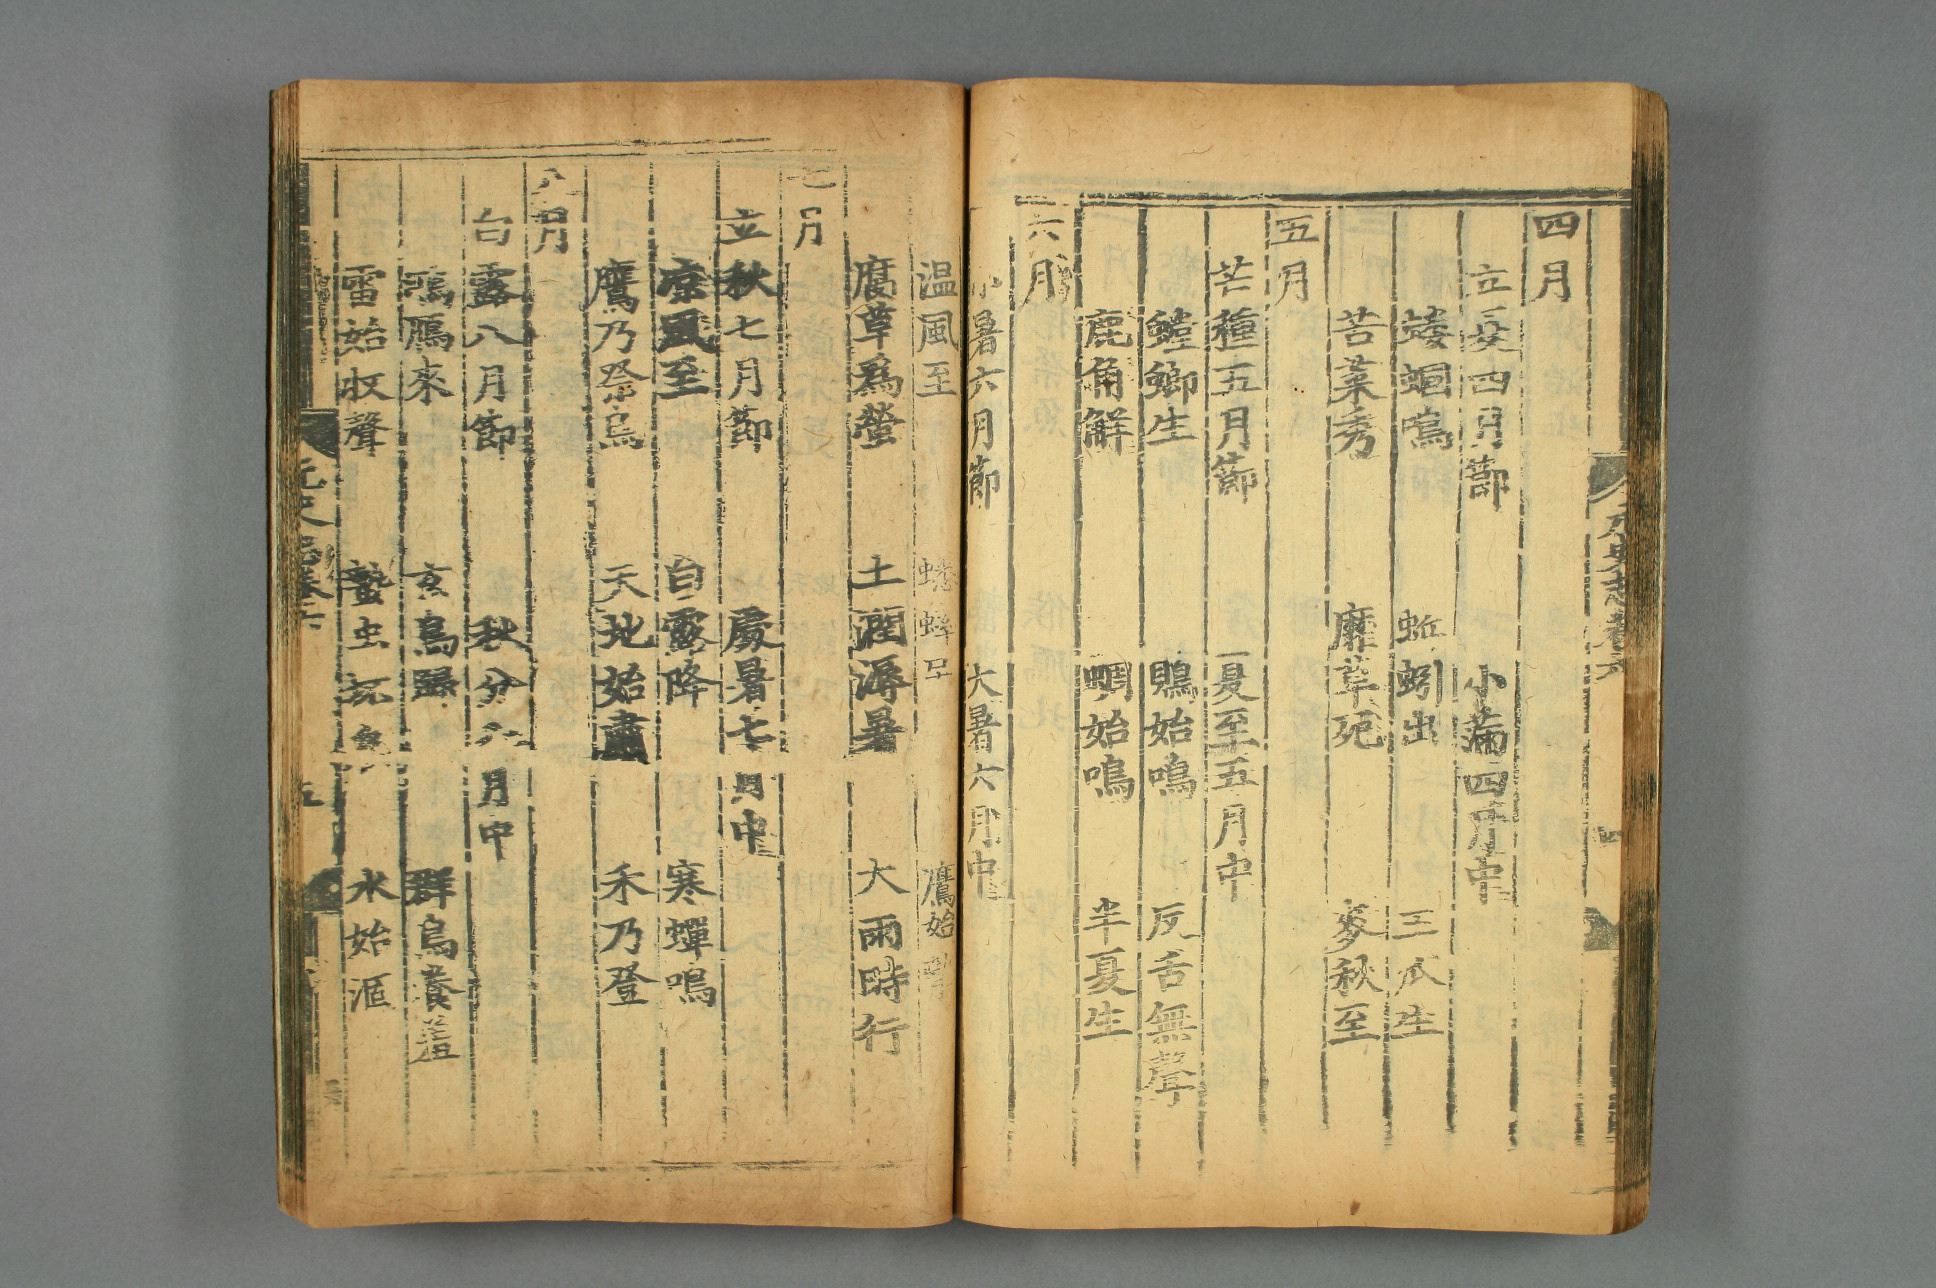 四月
立夏四月節 小滿四月中
螻蟈鳴 蚯蚓出 王瓜生
苦菜秀 靡草死 麥秋至
五月
芒種五月節 夏至五月中
螳螂生 鵙始鳴 反舌無聲
鹿角解 蜩始鳴 半夏生
六月
小暑六月節 大暑六月中
温風至 蟋蟀居 鷹始摯
腐草爲螢 土潤溽暑 大雨時行
七月
立秋七月節 處暑七月中
凉風至 白露降 寒蟬鳴
鷹乃祭鳥 天地始肅 禾乃登
八月
白露八月節 秋分八月中
鴻鴈來 玄鳥歸 群鳥養羞
雷始收聲 蟄虫坏戶 水始涸
元史志卷六
五